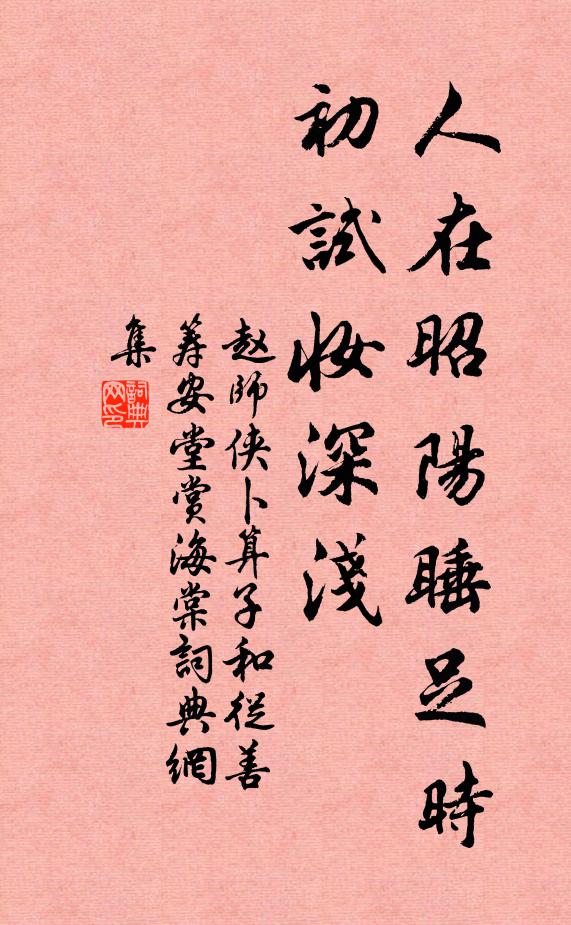 人在昭陽睡足時
初試妝深淺
赵師侠卜算子和從善
筹安堂赏海棠詞典網
集
詞典網印